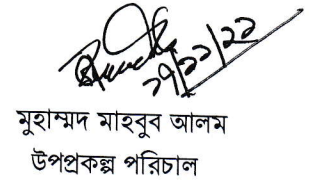 ২৭/১১/২২
মুহাম্মদ মাহবুব আলম
উপপ্রকল্প পরিচাল